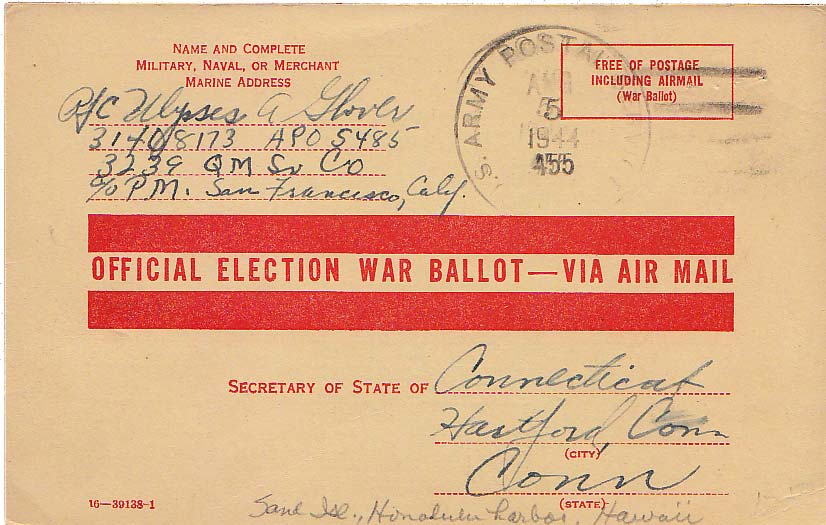 NAME AND COMPLETE
MILITARY, NAVAL, OR MERCHANT
MARINE ADDRESS
Pfc Ulysses A Glover
31408173 APO 5485
3239 QM Sv Co
c/o P.M. San Francisco, Caly.
U.S. ARMY POSTAL
AUG
5
1944
455
FREE OF POSTAGE
INCLUDING AIRMAIL
(War Ballot)
OFFICIAL ELECTION WAR BALLOT—VIA AIR MAIL
SECRETARY OF STATE OF Connecticut
Hartford, Conn
(CITY)
Conn
(STATE)
16—39138-1
Sand Isl., Honolulu harbor, Hawaii